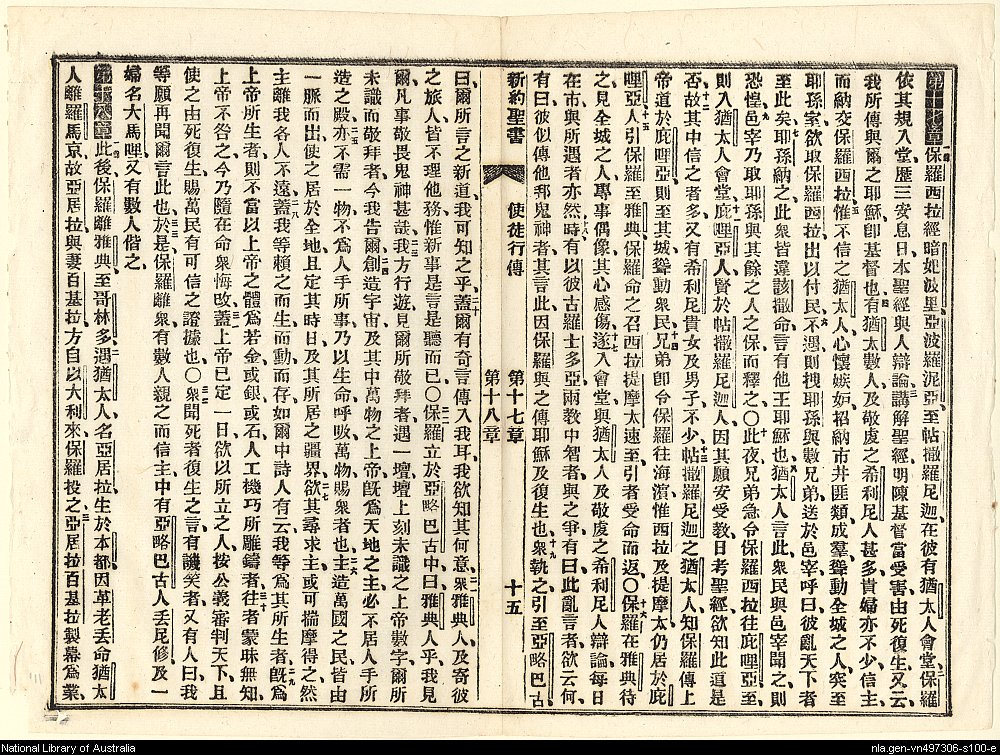 第十七章 保羅西拉經暗妃波里亞波羅泥亞至帖撒羅尼迦在彼有猶太人會堂保羅
依其規入堂歷三安息日本聖經與人辯論講解聖經明陳基督當受害由死復生又云
我所傳與爾之耶穌卽基督也有猶太數人及敬虔之希利尼人甚多貴婦亦不少信主
而納交保羅西拉惟不信之猶太人心懷嫉妒招納市井匪類成羣聳動全城之人突至
耶孫家欲取保羅西拉出以付民不遇則拽耶孫與數兄弟送於邑宰呼曰彼亂天下者
至此矣耶孫納之此衆皆違該撒命言有他王耶穌也猶太人言此衆民與邑宰聞之則
恐惶邑宰乃取耶孫與其餘之人之保而釋之○此夜兄弟急令保羅西拉往庇哩亞至
則入猶太人會堂庇哩亞人賢於帖撒羅尼迦人因其願安受教日考聖經欲知此道是
否故其中信之者多又有希利尼貴女及男子不少帖撒羅尼迦之猶太人知保羅傳上
帝道於庇哩亞則至其城聳動衆民兄弟卽令保羅往海濱惟西拉及提摩太仍居於庇
哩亞人引保羅至雅典保羅命之召西拉提摩太速至引者受命而返○保羅在雅典待
之見全城之人專事偶像其心感傷遂入會堂與猶太人及敬虔之希利尼人辯論每日
在市與所遇者亦然時有以彼古羅士多亞兩教中智者與之爭有曰此亂言者欲云何
有曰彼似傳他邦鬼神者其言此因保羅與之傳耶穌及復生也衆執之引至亞略巴古
新約聖書 使徒行傳 第十七章 第十八章 十五
曰爾所言之新道我可知之乎蓋爾有奇言傳入我耳我欲知其何意衆雅典人及寄彼
之旅人皆不理他務惟新事是言是聽而已○保羅立於亞略巴古中曰雅典人乎我見
爾凡事敬畏鬼神甚蓋我方行遊見爾所敬拜者遇一壇壇上刻未識之上帝數字爾所
未識而敬拜者今我吿爾創造宇宙及其中萬物之上帝旣爲天地之主必不居人手所
造之殿亦不需一物不爲人手所事乃以生命呼吸萬物賜衆者也主造萬國之民皆由
一脈而出使之居於全地且定其時日及其所居之疆界欲其尋求主或可揣摩得之然
主離我各人不遠蓋我等賴之而生而動而存如爾中詩人有云我等爲其所生者旣爲
上帝所生者則不當以上帝之體爲若金或銀或石人工機巧所雕鑄者往者蒙昧無知
上帝不咎之今乃隨在命衆悔改蓋上帝已定一日欲以所立之人按公義審判天下且
使之由死復生賜萬民有可信之證據也○衆聞死者復生之言有譏笑者又有人曰我
等願再聞爾言此也於是保羅離衆有數人親之而信主中有亞略巴古人丟尼修及一
婦名大馬哩又有數人偕之
第十八章 此後保羅離雅典至哥林多遇猶太人名亞居拉生於本都因革老丟命猶太
人離羅馬京故亞居拉與妻百基拉方自以大利來保羅投之亞居拉百基拉製幕爲業
National Library of Australia
nla.gen-vn497306-s100-e